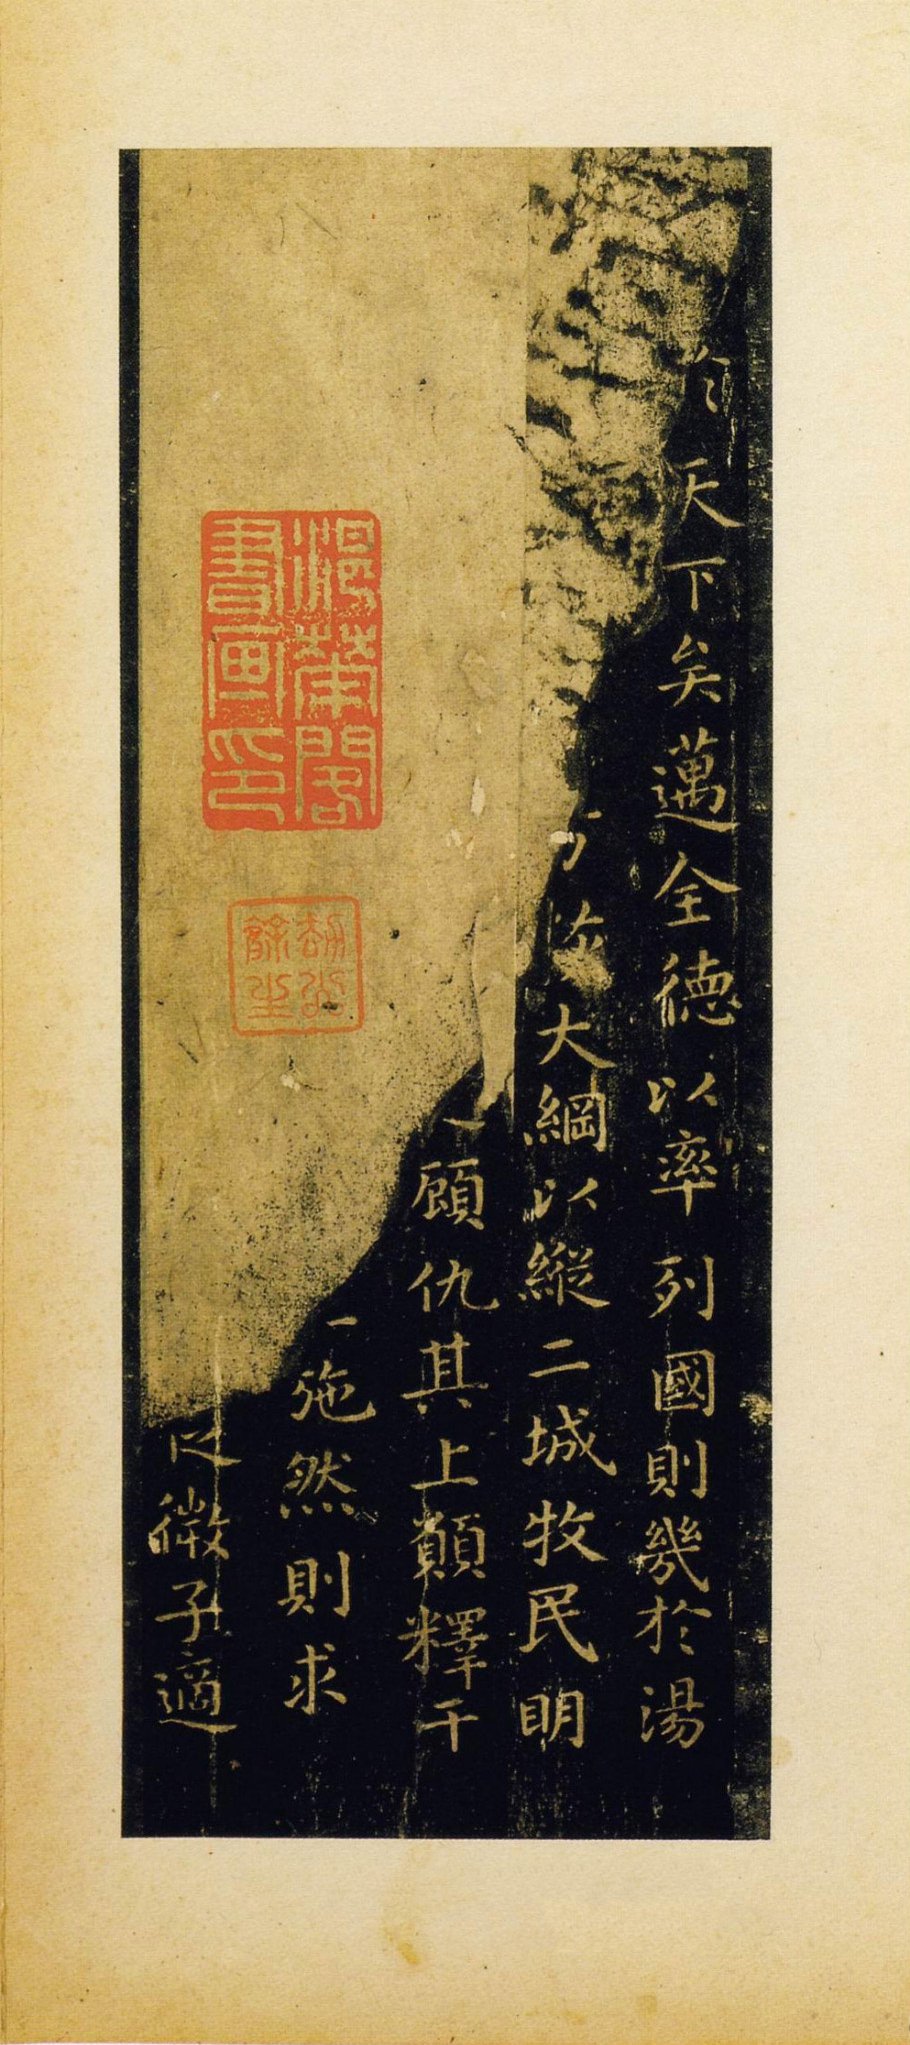 天下矣邁全德以率列國則幾於湯
方恢大綱以縱二城牧民明
顧仇其上願釋干
施然則求
微子適
書画印